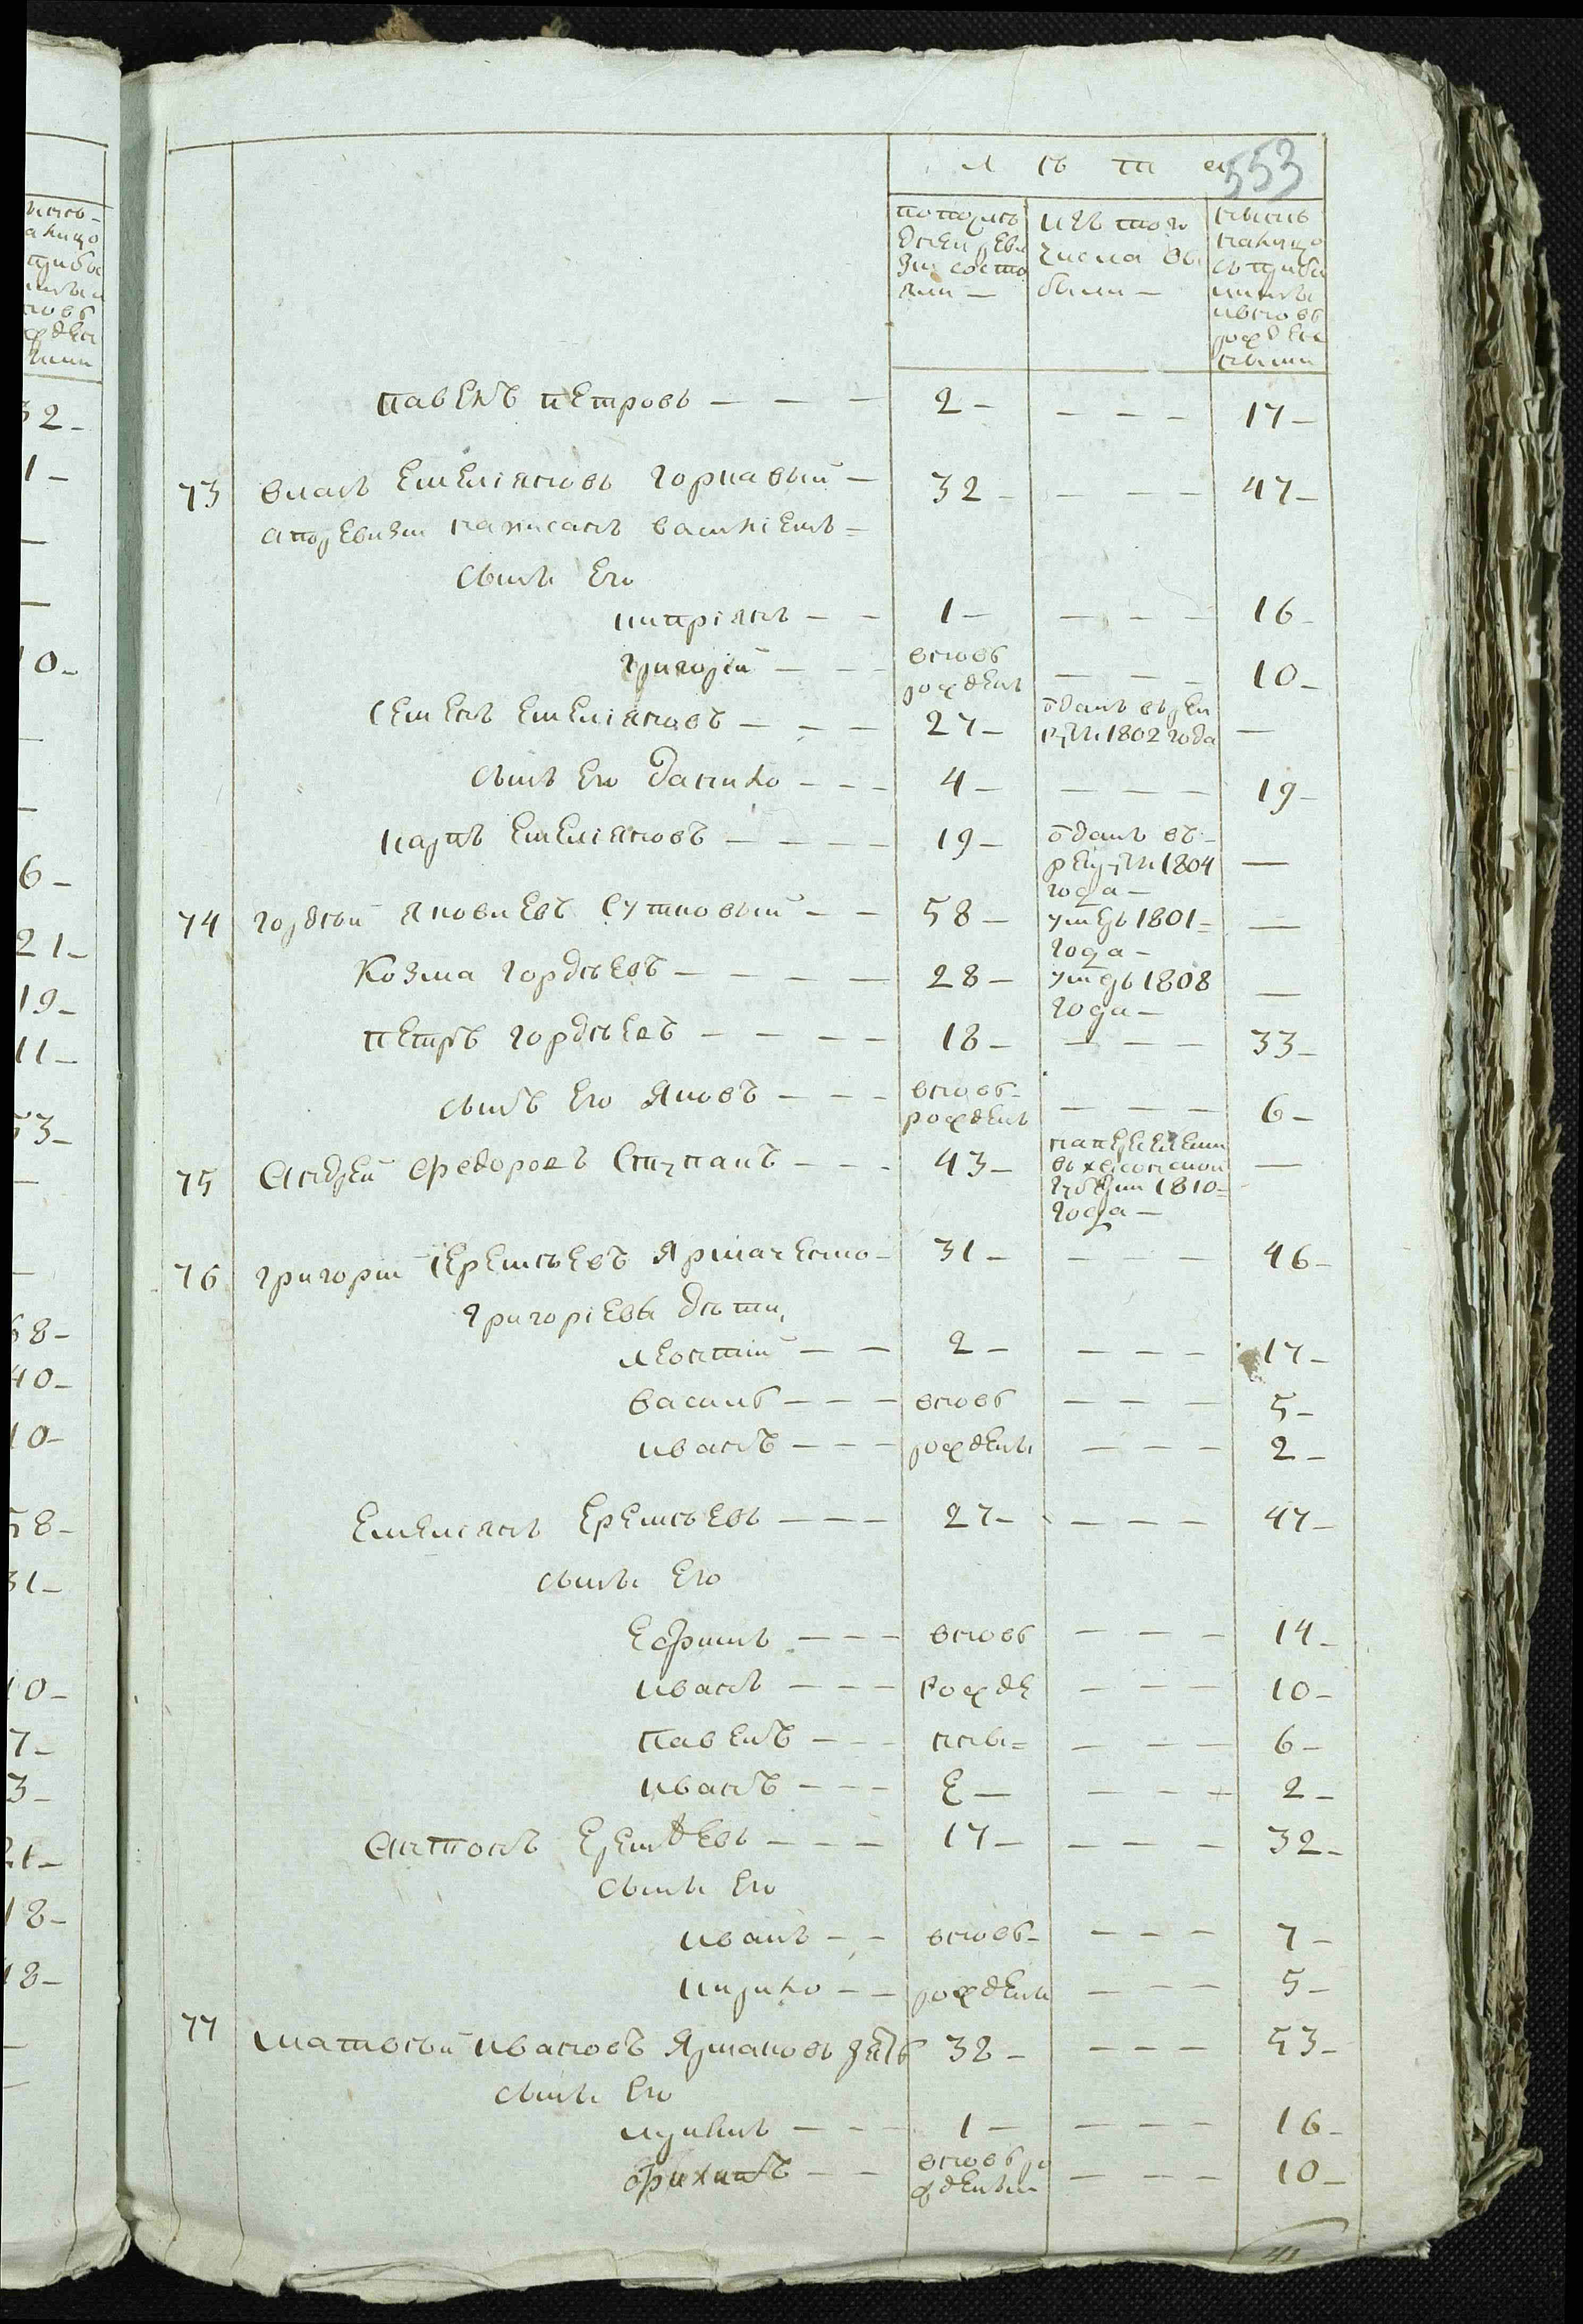 553
лѣта
по послѣ
дней реви
зіи состо
яли —
изъ того
числа вы
были —
нынѣ
налицо
съ прибы
лыми
и вновь
рожден
ными
Павелъ Петровъ — — — 2 — — — — 17 —
73 Власъ Емеліяновъ Горкавый — 32 — — — — 47 —
а по ревизіи написанъ Василіемъ =
сыны Его
Кипріянъ — — 1 — — — — 16 —
Григорій — — — вновь рожденъ — — — 10 —
Семенъ Емеліяновъ — — — 27 — отданъ въ рекруты 1802 года —
сынъ Его Данило — — — 4 — — — — 19 —
Карпъ Емеліяновъ — — — — 19 — отданъ въ рекруты 1804 года — —
74 Гордѣй Яковлевъ Сутковый — — 58 — умеръ 1801 = года — —
Козма Гордѣевъ — — — — 28 — умеръ 1808 года — —
Петръ Гордѣевъ — — — — 18 — — — — 33 —
сынъ Его Яковъ — — — вновь рожденъ — — — 6 —
75 Андрей Федоровъ Ступакъ — — — 43 — на переселеніи въ херсонской губерніи 1810 = года — —
76 Григорій Еремѣевъ Ярмаченко — 31 — — — 46 —
Григоріевы дѣти,
Леонтій — — 2 — — — — 17 —
Василь — — — вновь — — — 5 —
Иванъ — — — рождены — — — 2 —
Емеліянъ Еремѣевъ — — — 27 — — — — 47 —
сыны Его
Ефимъ — — — вновь — — — 14 —
Иванъ — — — рожде — — — 10 —
Павелъ — — — нны = — — — 6 —
Иванъ — — — е — — — — 2 —
Антонъ Еремѣевъ — — — 17 — — — — 32 —
сыны Его
Иванъ — — вновь — — — — 7 —
Кирило — — рождены — — — 5 —
77 Матвѣй Ивановъ Ярмаковъ зять 38 — — — — 53 —
сыны Его
Лукянъ — — — 1 — — — — 16 —
Филипъ — — вновь рожденый — — — 10 —
41